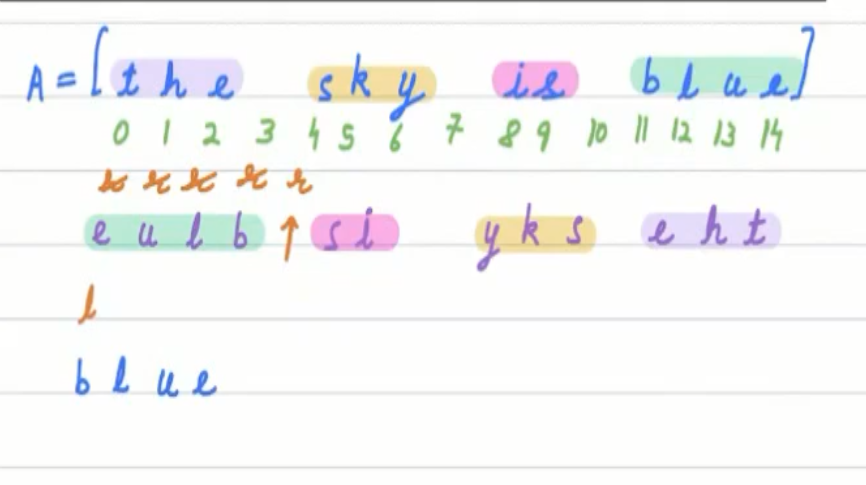 A = [ t h e   s k y   i s   b l u e ]
0 1 2 3 4 5 6 7 8 9 10 11 12 13 14
r r r r r
e u l b ↑ s i   y k s   e h t
l
b l u e